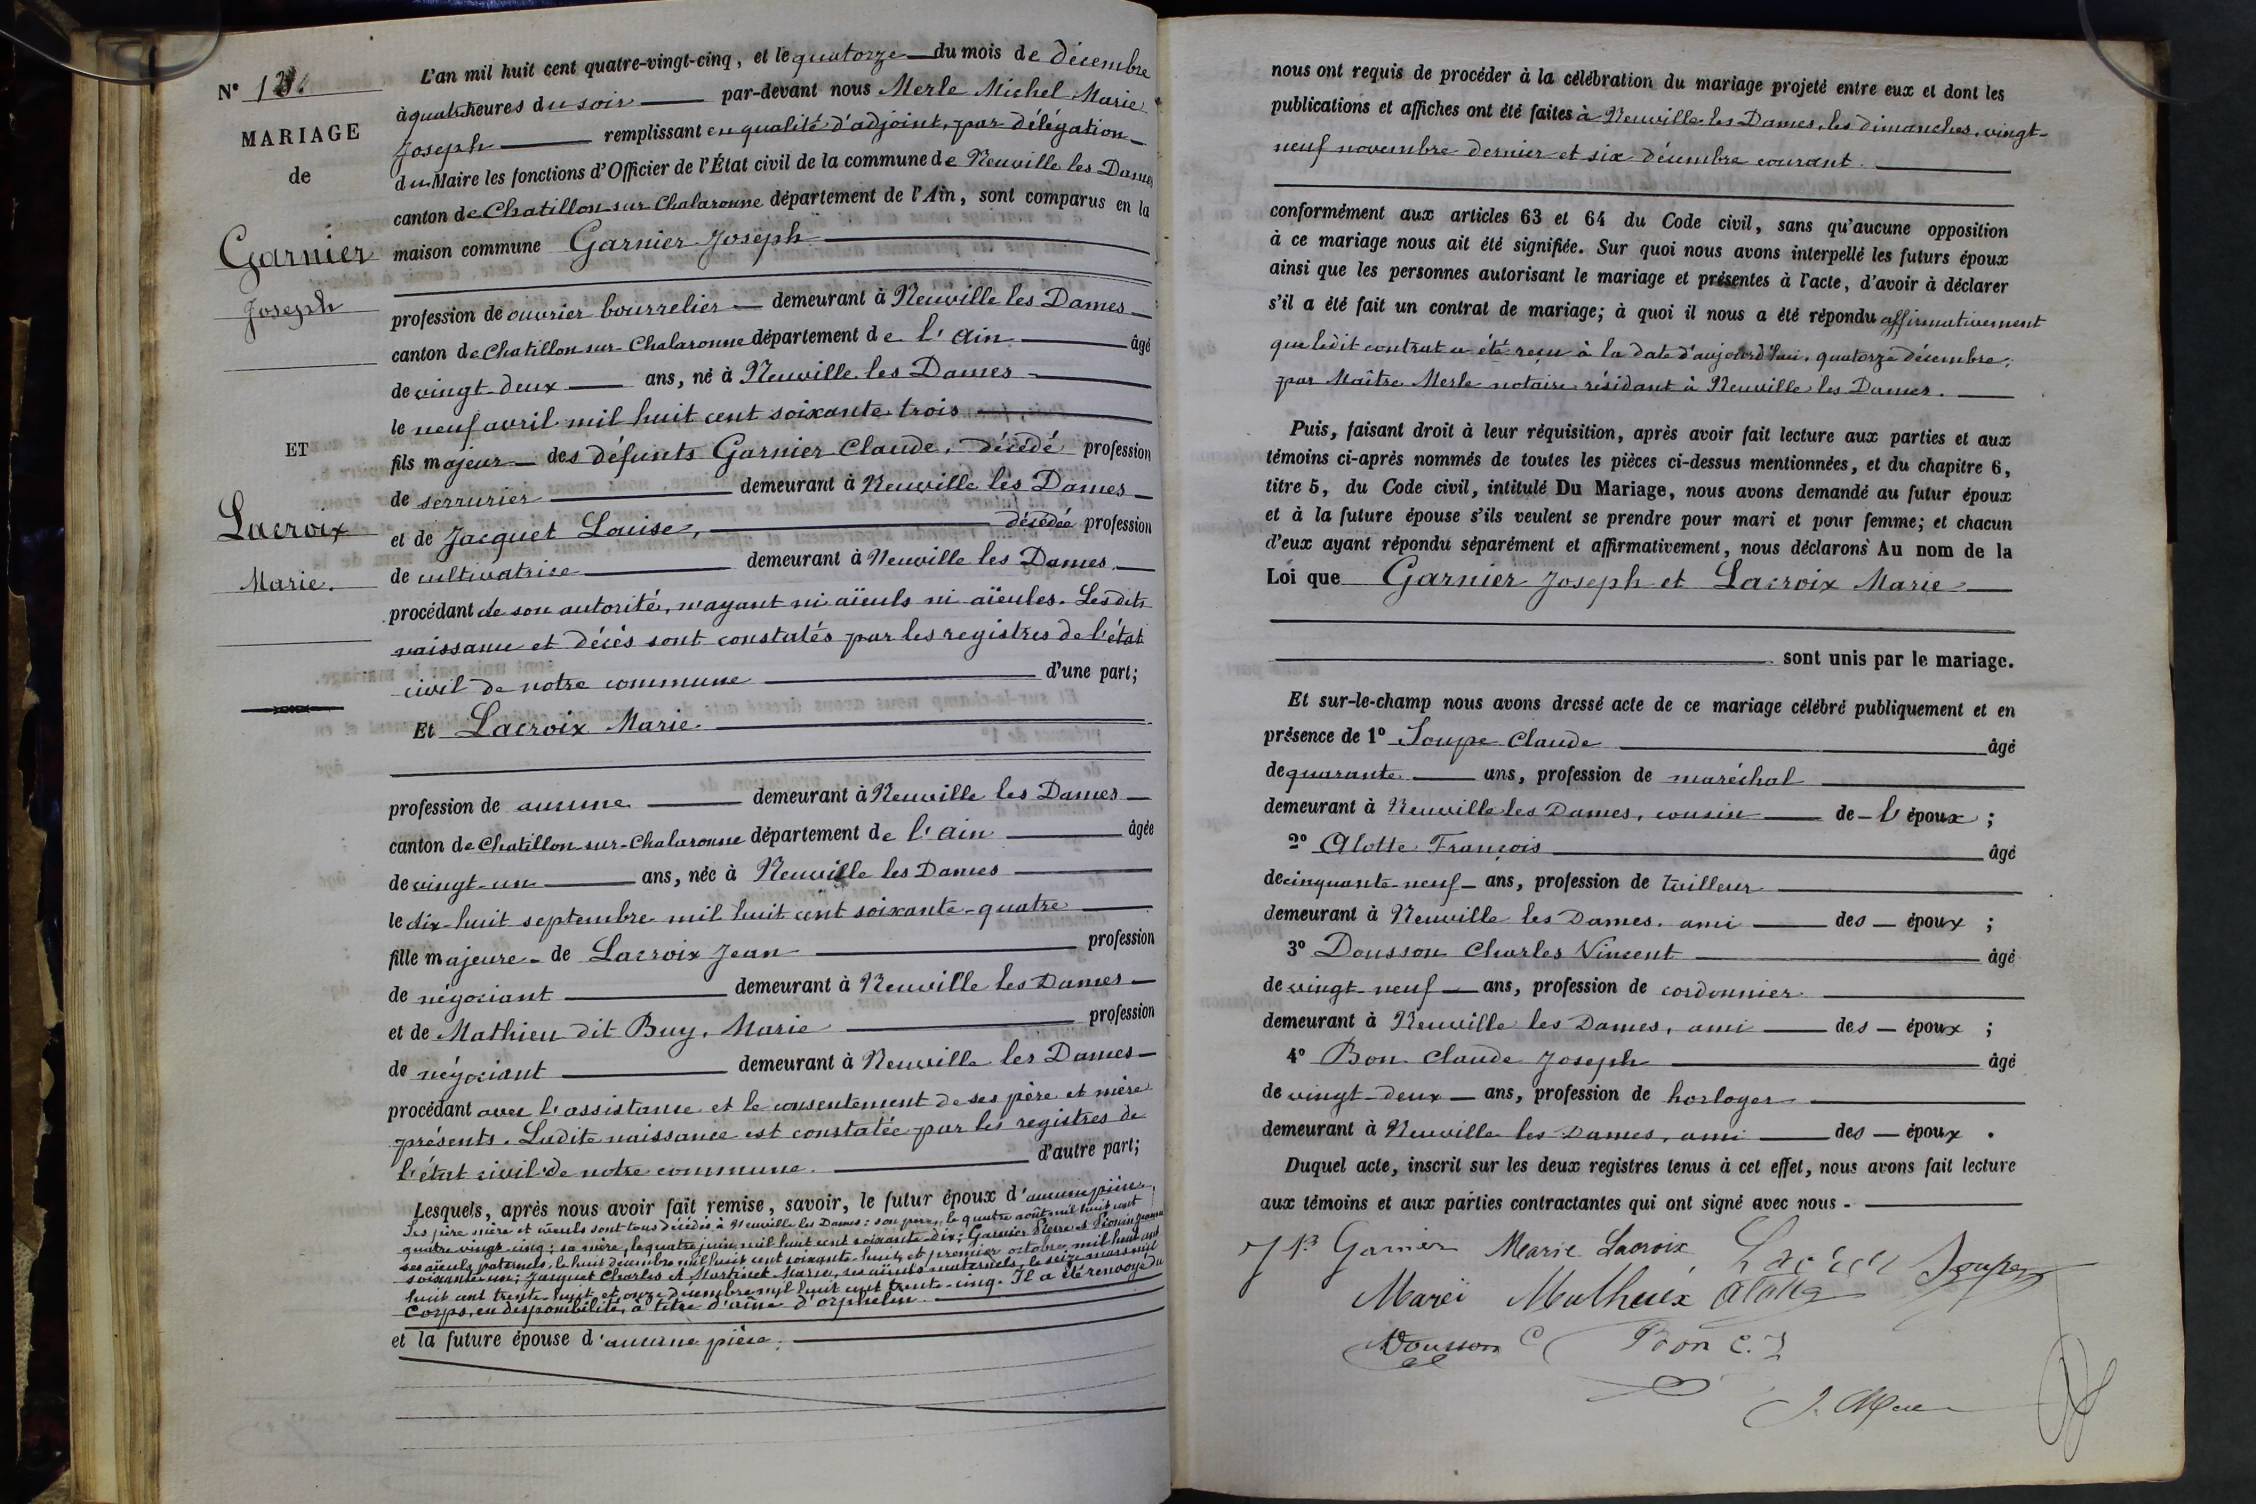 N° 13.
MARIAGE
de
Garnier
Joseph
ET
Lacroix
Marie.
L'an mil huit cent quatre-vingt-cinq, et le quatorze du mois de décembre
à quatre heures du soir par-devant nous Merle Michel Marie
Joseph remplissant en qualité d'adjoint, par délégation
du Maire les fonctions d'Officier de l'État civil de la commune de Neuville les Dames
canton de Chatillon sur Chalaronne département de l'Ain, sont comparus en la
maison commune Garnier Joseph
profession de ouvrier bourrelier demeurant à Neuville les Dames
canton de Chatillon sur Chalaronne département de l'Ain âgé
de vingt deux ans, né à Neuville les Dames
le neuf avril mil huit cent soixante trois
fils majeur des défunts Garnier Claude, décédé profession
de serrurier demeurant à Neuville les Dames
et de Jacquet Louise, décédée profession
de cultivatrice demeurant à Neuville les Dames
procédant de son autorité, n'ayant ni aïeuls ni aïeules. Lesdits
naissance et décès sont constatés par les registres de l'état
civil de notre commune d'une part;
Et Lacroix Marie.
profession de aucune demeurant à Neuville les Dames
canton de Chatillon-sur-Chalaronne département de l'Ain âgée
de vingt-un ans, née à Neuville les Dames
le dix-huit septembre mil huit cent soixante-quatre
fille majeure de Lacroix Jean profession
de négociant demeurant à Neuville les Dames
et de Mathieu dit Buy, Marie profession
de négociant demeurant à Neuville les Dames
procédant avec l'assistance et le consentement de ses père et mère
présents. Ladite naissance est constatée par les registres de
l'état civil de notre commune. d'autre part;
Lesquels, après nous avoir fait remise, savoir, le futur époux d'aucune pièce.
Ses père mère et aïeuls sont tous décédés à Neuville les Dames: son père, le quatre août mil huit cent
quatre vingt cinq; sa mère, le quatre juin mil huit cent soixante-dix; Garnier Pierre et
ses aïeuls paternels, le huit décembre mil huit cent soixante-huit et premier octobre mil huit cent
soixante-un; Jacquet Charles et Martinet Marie, ses aïeuls maternels, le seize mars mil
huit cent trente-huit et onze décembre mil huit cent trente-cinq. Il a été renvoyé du
corps, en disponibilité, à titre d'aîné d'orphelin.
et la future épouse d'aucune pièce.
nous ont requis de procéder à la célébration du mariage projeté entre eux et dont les
publications et affiches ont été faites à Neuville les Dames, les dimanches, vingt-
neuf novembre dernier et six décembre courant.
conformément aux articles 63 et 64 du Code civil, sans qu'aucune opposition
à ce mariage nous ait été signifiée. Sur quoi nous avons interpellé les futurs époux
ainsi que les personnes autorisant le mariage et présentes à l'acte, d'avoir à déclarer
s'il a été fait un contrat de mariage; à quoi il nous a été répondu affirmativement
que ledit contrat a été reçu à la date d'aujourd'hui, quatorze décembre,
par Maître Merle notaire résidant à Neuville les Dames.
Puis, faisant droit à leur réquisition, après avoir fait lecture aux parties et aux
témoins ci-après nommés de toutes les pièces ci-dessus mentionnées, et du chapitre 6,
titre 5, du Code civil, intitulé Du Mariage, nous avons demandé au futur époux
et à la future épouse s'ils veulent se prendre pour mari et pour femme; et chacun
d'eux ayant répondu séparément et affirmativement, nous déclarons Au nom de la
Loi que Garnier Joseph et Lacroix Marie
sont unis par le mariage.
Et sur-le-champ nous avons dressé acte de ce mariage célébré publiquement et en
présence de 1° Soupe Claude âgé
de quarante ans, profession de maréchal
demeurant à Neuville les Dames, cousin de l'époux;
2° Alotte François âgé
de cinquante-neuf ans, profession de tailleur
demeurant à Neuville les Dames, ami des époux;
3° Dousson Charles Vincent âgé
de vingt-neuf ans, profession de cordonnier
demeurant à Neuville les Dames, ami des époux;
4° Bon Claude Joseph âgé
de vingt-deux ans, profession de horloger
demeurant à Neuville les Dames, ami des époux.
Duquel acte, inscrit sur les deux registres tenus à cet effet, nous avons fait lecture
aux témoins et aux parties contractantes qui ont signé avec nous.
Garnier Marie Lacroix Soupe
Dousson C Bon C. J